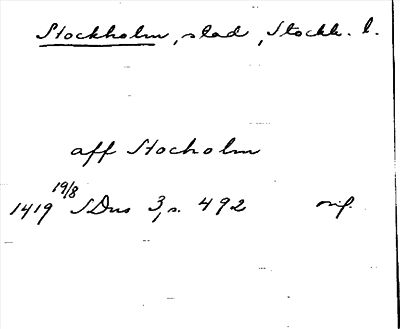 Stockholm, stad, Stockh. l.
aff Stocholm
1419 19/8 SDns 3, s. 492 orig.